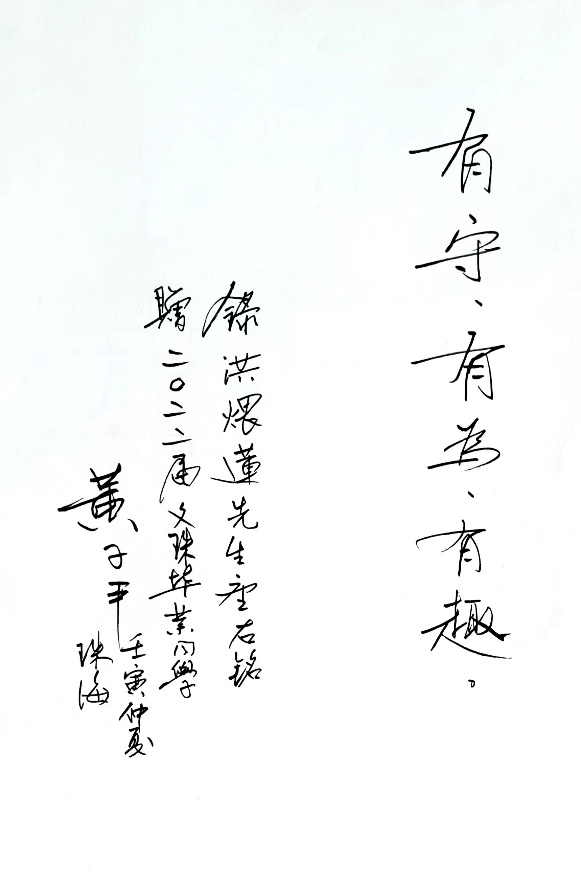 有守、有為、有趣。
錄洪煨蓮先生座右銘
贈二〇二二届文珠毕業同學
黃子平
壬寅仲夏
珠海